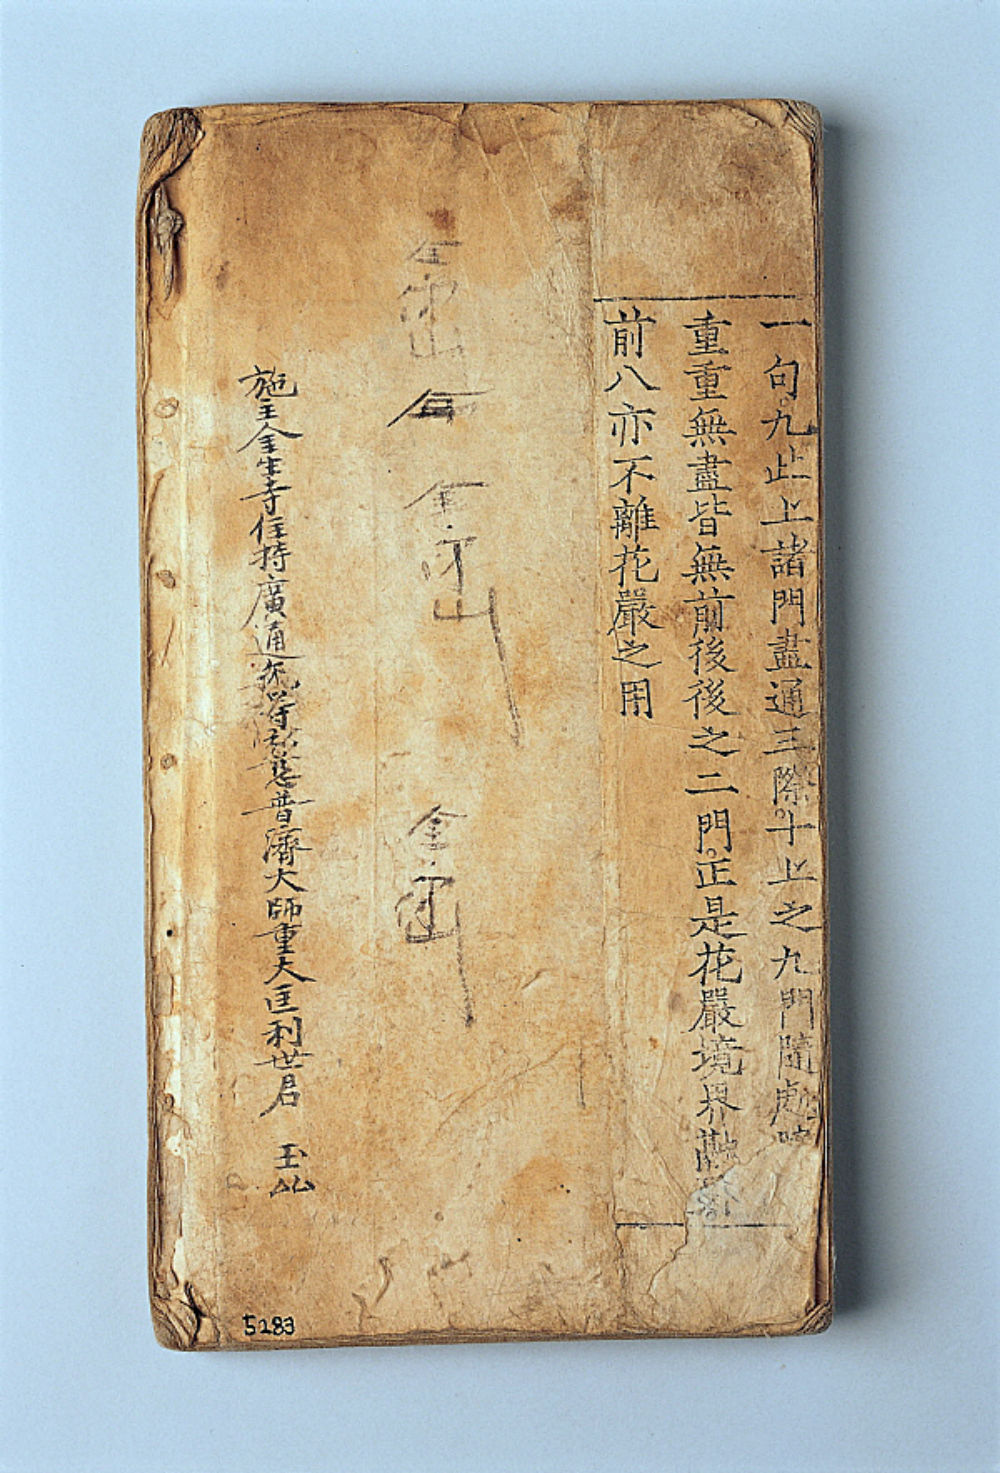 一句。九止上諸門盡通三際。十上之九門隨處
重重無盡皆無前後後之二門。正是花嚴境界
前八亦不離花嚴之用
金
山
金
山
金
山
施主金生寺住持廣通 普濟大師重大匡利世君 玉山
5283